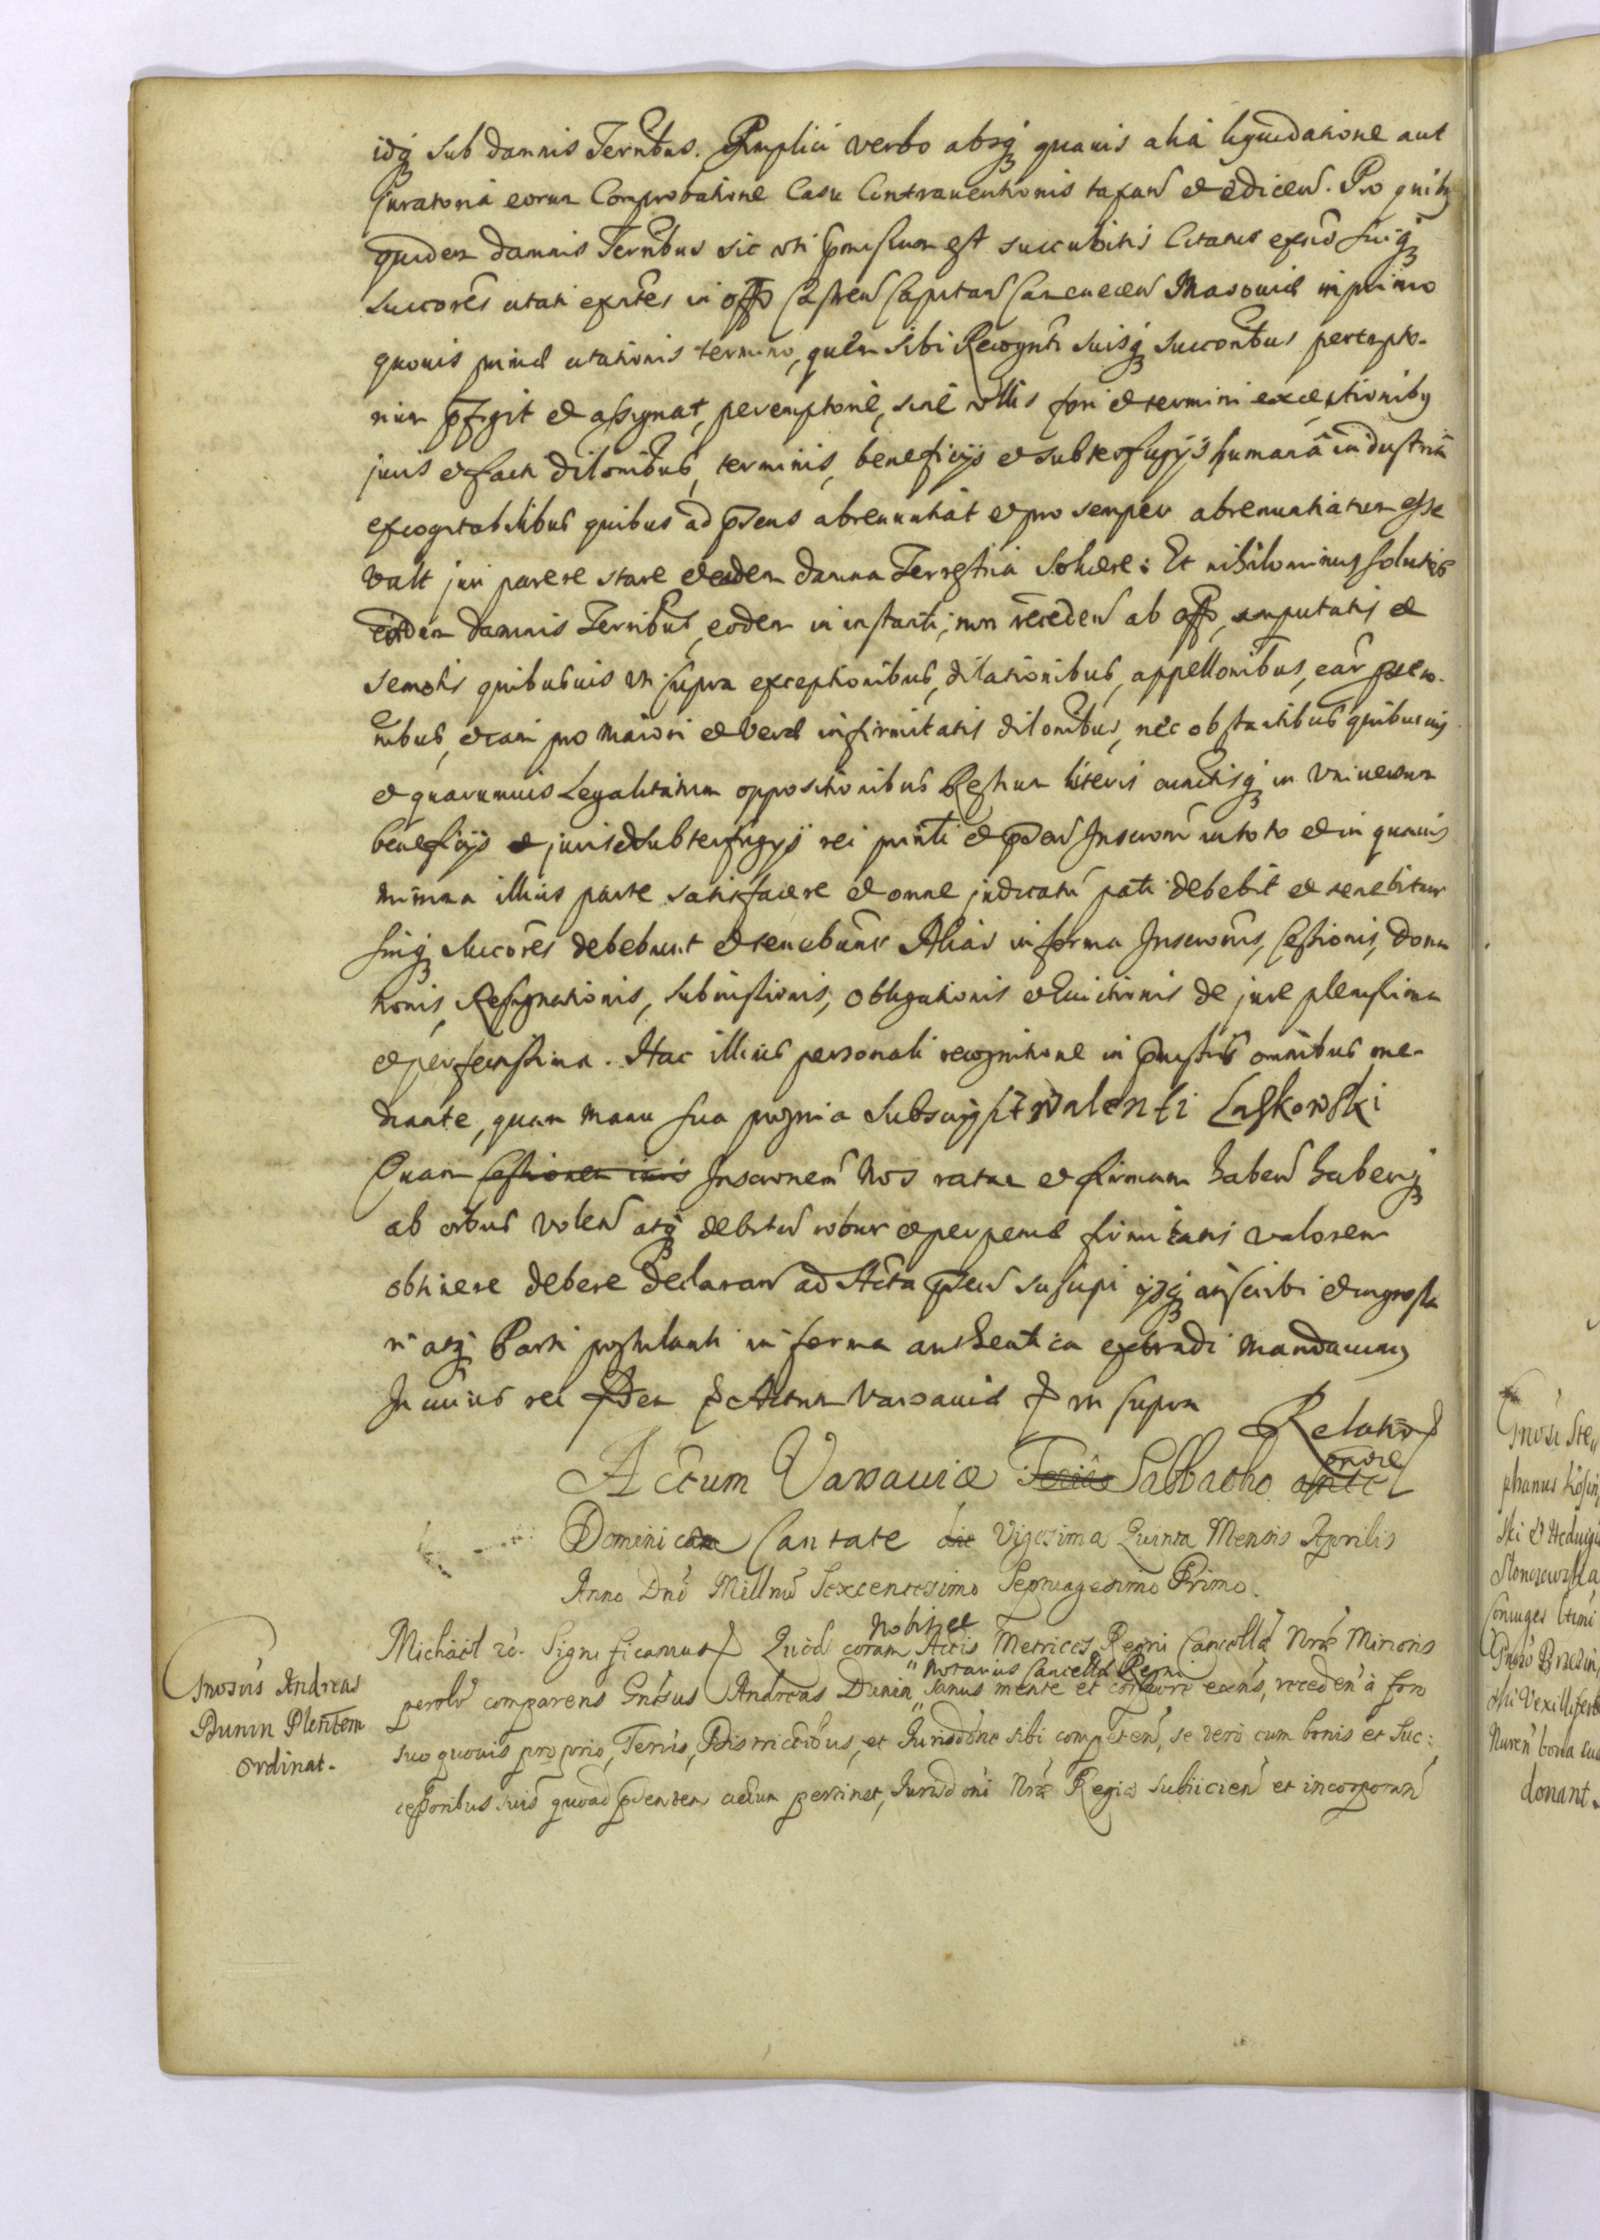 idq sub damnis Terribus. Simplici verbo absq quavis alia liquidatione aut
Iuratoria eorum Comprobatione Casu Contraventionis taxan et edicen. Pro quibus
quidem damnis Terribus sic uti pmissum est succubitis Citatus
succores citati exntes in offo Castren Capitan Camenecen Masoviæ in primo
quovis citationis termino, quem sibi Recognti suisq succoribus perempto-
rium pfigit et assignat, peremptorie, sine ullis fori et termini exceptionibus
juris et facti dilonibus, terminis, beneficijs et subterfugijs humana industria
excogitabilibus quibus ad psens abrenuntiat et pro semper abrenuntiatum esse
vult juri parere stare et eadem damna Terrestria solvere: Et nihilominus solutis
eisdem damnis Terribus, eodem in instanti, non receden ab offo, amputatis et
semotis quibusvis uti supra exceptionibus, dilationibus, appellonibus, ear
nibus, etiam pro maiori et veræ infirmitatis dilonibus, nec obstantibus quibusvis
et quarumvis Legalitatum oppositionibus literis cunctisq in universum
beneficijs et juris et subterfugijs rei et Inscrom in toto et in quavis
minima illius parte satisfacere et omne judicatu pati debebit et tenebitur
suiq succores debebunt et tenebuntr Alias in forma Inscronis, Cessionis, Dona
tionis, Resignationis, submissionis, obligationis et Evictionis de jure plenissima
et perfectissima. Hac illius personali recognitione in pmissis omnibus me-
diante, quam manu sua propria subscripsit Walenti Laskowski
Quam Cessionem juris Inscronem Nos ratam et firmam haben haberiq
ab oibus volen atq debitu robur et perpetuæ firmitatis valorem
obtinere debere declaran ad Acta psen suscipi ijsq inscribi et ingrossa
ri atq Parti postulanti in forma authentica extradi mandavimus
In cuius rei fidem Actum Varsaviæ uti supra
Relatio
Actum Varsaviæ Feria Sabbatho ante pridie
Dominicam Cantate die Vigesima Quinta Mensis Aprilis
Anno Dni Millmo Sexcentesimo Septuagesimo Primo.
Michael Significamus Quod coram Nobis et Actis Metrices Regni Cancellæ Nræ Minoris
persolr comparens Gnrsus Andreas Dunin Notarius Cancellæ Regni sanus mente et corpore exens, receden a foro
suo quovis proprio, Terris, Districtibus, et Jurisdone sibi competen, se vero cum bonis et suc:
cessoribus suis quoad psentem actum pertinet, Jurisdoni Nræ Regiæ subiicien et incorporan
Gnosus Andreas
Dunin Plenitem
ordinat.
Gnosi Ste
phanus
ski et Hedvigis
Coniuges
Vexillifero
bona sua
donant.